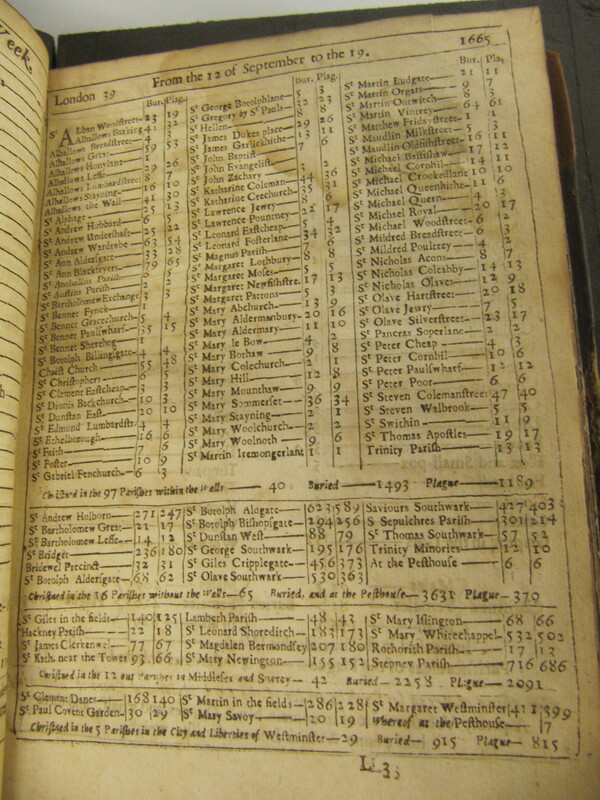 Week.
London 39
From the 12 of September to the 19.
1665
Bur. Plag.
St Alban Woodstreet 23 19
Alhallows Barking 41 32
Alhallows Breadstreet 4 3
Alhallows Great 59 53
Alhallows Honylane 1
Alhallows Lesse 29 26
Alhallows Lumbardstreet 8 7
Alhallows Stayning 16 10
Alhallows the Wall 41 30
St Alphage 25 13
St Andrew Hubbard 6 5
St Andrew Undershaft 25 22
St Andrew Wardrobe 63 54
St Ann Aldersgate 33 28
St Ann Blackfryers 79 65
St Antholins Parish
St Austins Parish
St Bartholomew Exchange
St Bennet Fynck
St Bennet Gracechurch
St Bennet Paulswharf 35 15
St Bennet Sherehog 1
St Botolph Billingsgate
Christ Church 55 48
St Christophers
St Clement Eastcheap
St Dionis Backchurch
St Dunstan East 20 10
St Edmund Lumbardstr. 4 4
St Ethelborough 16 6
St Faith 7 6
St Foster 10 9
St Gabriel Fenchurch 6 3
Bur. Plag.
St George Botolphlane 5 3
St Gregory by St Pauls 32 23
St Hellen 8 8
St James Dukes place 29 26
St James Garlickhithe 13 11
St John Baptist 7 6
St John Evangelist
St John Zachary
St Katharine Coleman 44 36
St Katharine Crechurch 35 31
St Lawrence Jewry
St Lawrence Pountney 22 17
St Leonard Eastcheap
St Leonard Fosterlane 34 32
St Magnus Parish
St Margaret Lothbury
St Margaret Moses
St Margaret Newfishstre. 17 13
St Margaret Pattons
St Mary Abchurch 13 9
St Mary Aldermanbury 20 16
St Mary Aldermary 11 10
St Mary le Bow
St Mary Bothaw
St Mary Colechurch
St Mary Hill 12 8
St Mary Mounthaw 9 9
St Mary Sommerset 36 34
St Mary Stayning 2 1
St Mary Woolchurch 2 2
St Mary Woolnoth 9 6
St Martin Iremongerlane 1 1
Bur. Plag.
St Martin Ludgate 21 11
St Martin Orgars 9 7
St Martin Outwitch 8 3
St Martin Vintrey 64 61
St Matthew Fridaystreet 1 1
St Maudlin Milkstreet
St Maudlin Oldfishstreet 16 11
St Michael Bassishaw 17 12
St Michael Cornhil 14 11
St Michael Crookedlane 10 10
St Michael Queenhithe 11 6
St Michael Quern
St Michael Royal 20 17
St Michael Woodstreet
St Mildred Breadstreet
St Mildred Poultrey
St Nicholas Acons 8 7
St Nicholas Coleabby 14 13
St Nicholas Olaves 12 9
St Olave Hartstreet 20 18
St Olave Jewry
St Olave Silverstreet 23 17
St Pancras Soperlane 2 2
St Peter Cheap 4 3
St Peter Cornhil 10 6
St Peter Paulswharf 12 12
St Peter Poor 6 6
St Steven Colemanstreet 47 40
St Steven Walbrook 5 5
St Swithin 11 9
St Thomas Apostles 19 17
Trinity Parish 13 13
Christned in the 97 Parishes within the Walls 40 Buried 1493 Plague 1189
St Andrew Holborn 271 247
St Bartholomew Great 21 17
St Bartholomew Lesse 14 12
St Bridget 236 180
Bridewel Precinct 32 31
St Botolph Aldersgate 68 62
St Botolph Aldgate 623 589
St Botolph Bishopsgate 294 256
St Dunstan West 88 79
St George Southwark 195 176
St Giles Cripplegate 456 373
St Olave Southwark 530 363
Saviours Southwark 427 403
S Sepulchres Parish 301 214
St Thomas Southwark 57 52
Trinity Minories 12 10
At the Pesthouse 6 6
Christned in the 16 Parishes without the Walls 65 Buried, and at the Pesthouse 3631 Plague 370
St Giles in the fields 140 125
Hackney Parish 22 18
St James Clerkenwel 77 67
St Kath. near the Tower 93 66
Lambeth Parish 48 43
St Leonard Shoreditch 183 173
St Magdalen Bermondsey 207 180
St Mary Newington 155 152
St Mary Islington 68 66
St Mary Whitechappel 532 502
Rothorith Parish 17 13
Stepney Parish 716 686
Christned in the 12 out Parishes in Middlesex and Surrey 42 Buried 2258 Plague 2091
St Clement Danes 168 140
St Paul Covent Garden 30 29
St Martin in the fields 286 228
St Mary Savoy 20 19
St Margaret Westminster 411 399
Whereof at the Pesthouse 7
Christned in the 5 Parishes in the City and Liberties of Westminster 29 Buried 915 Plague 815